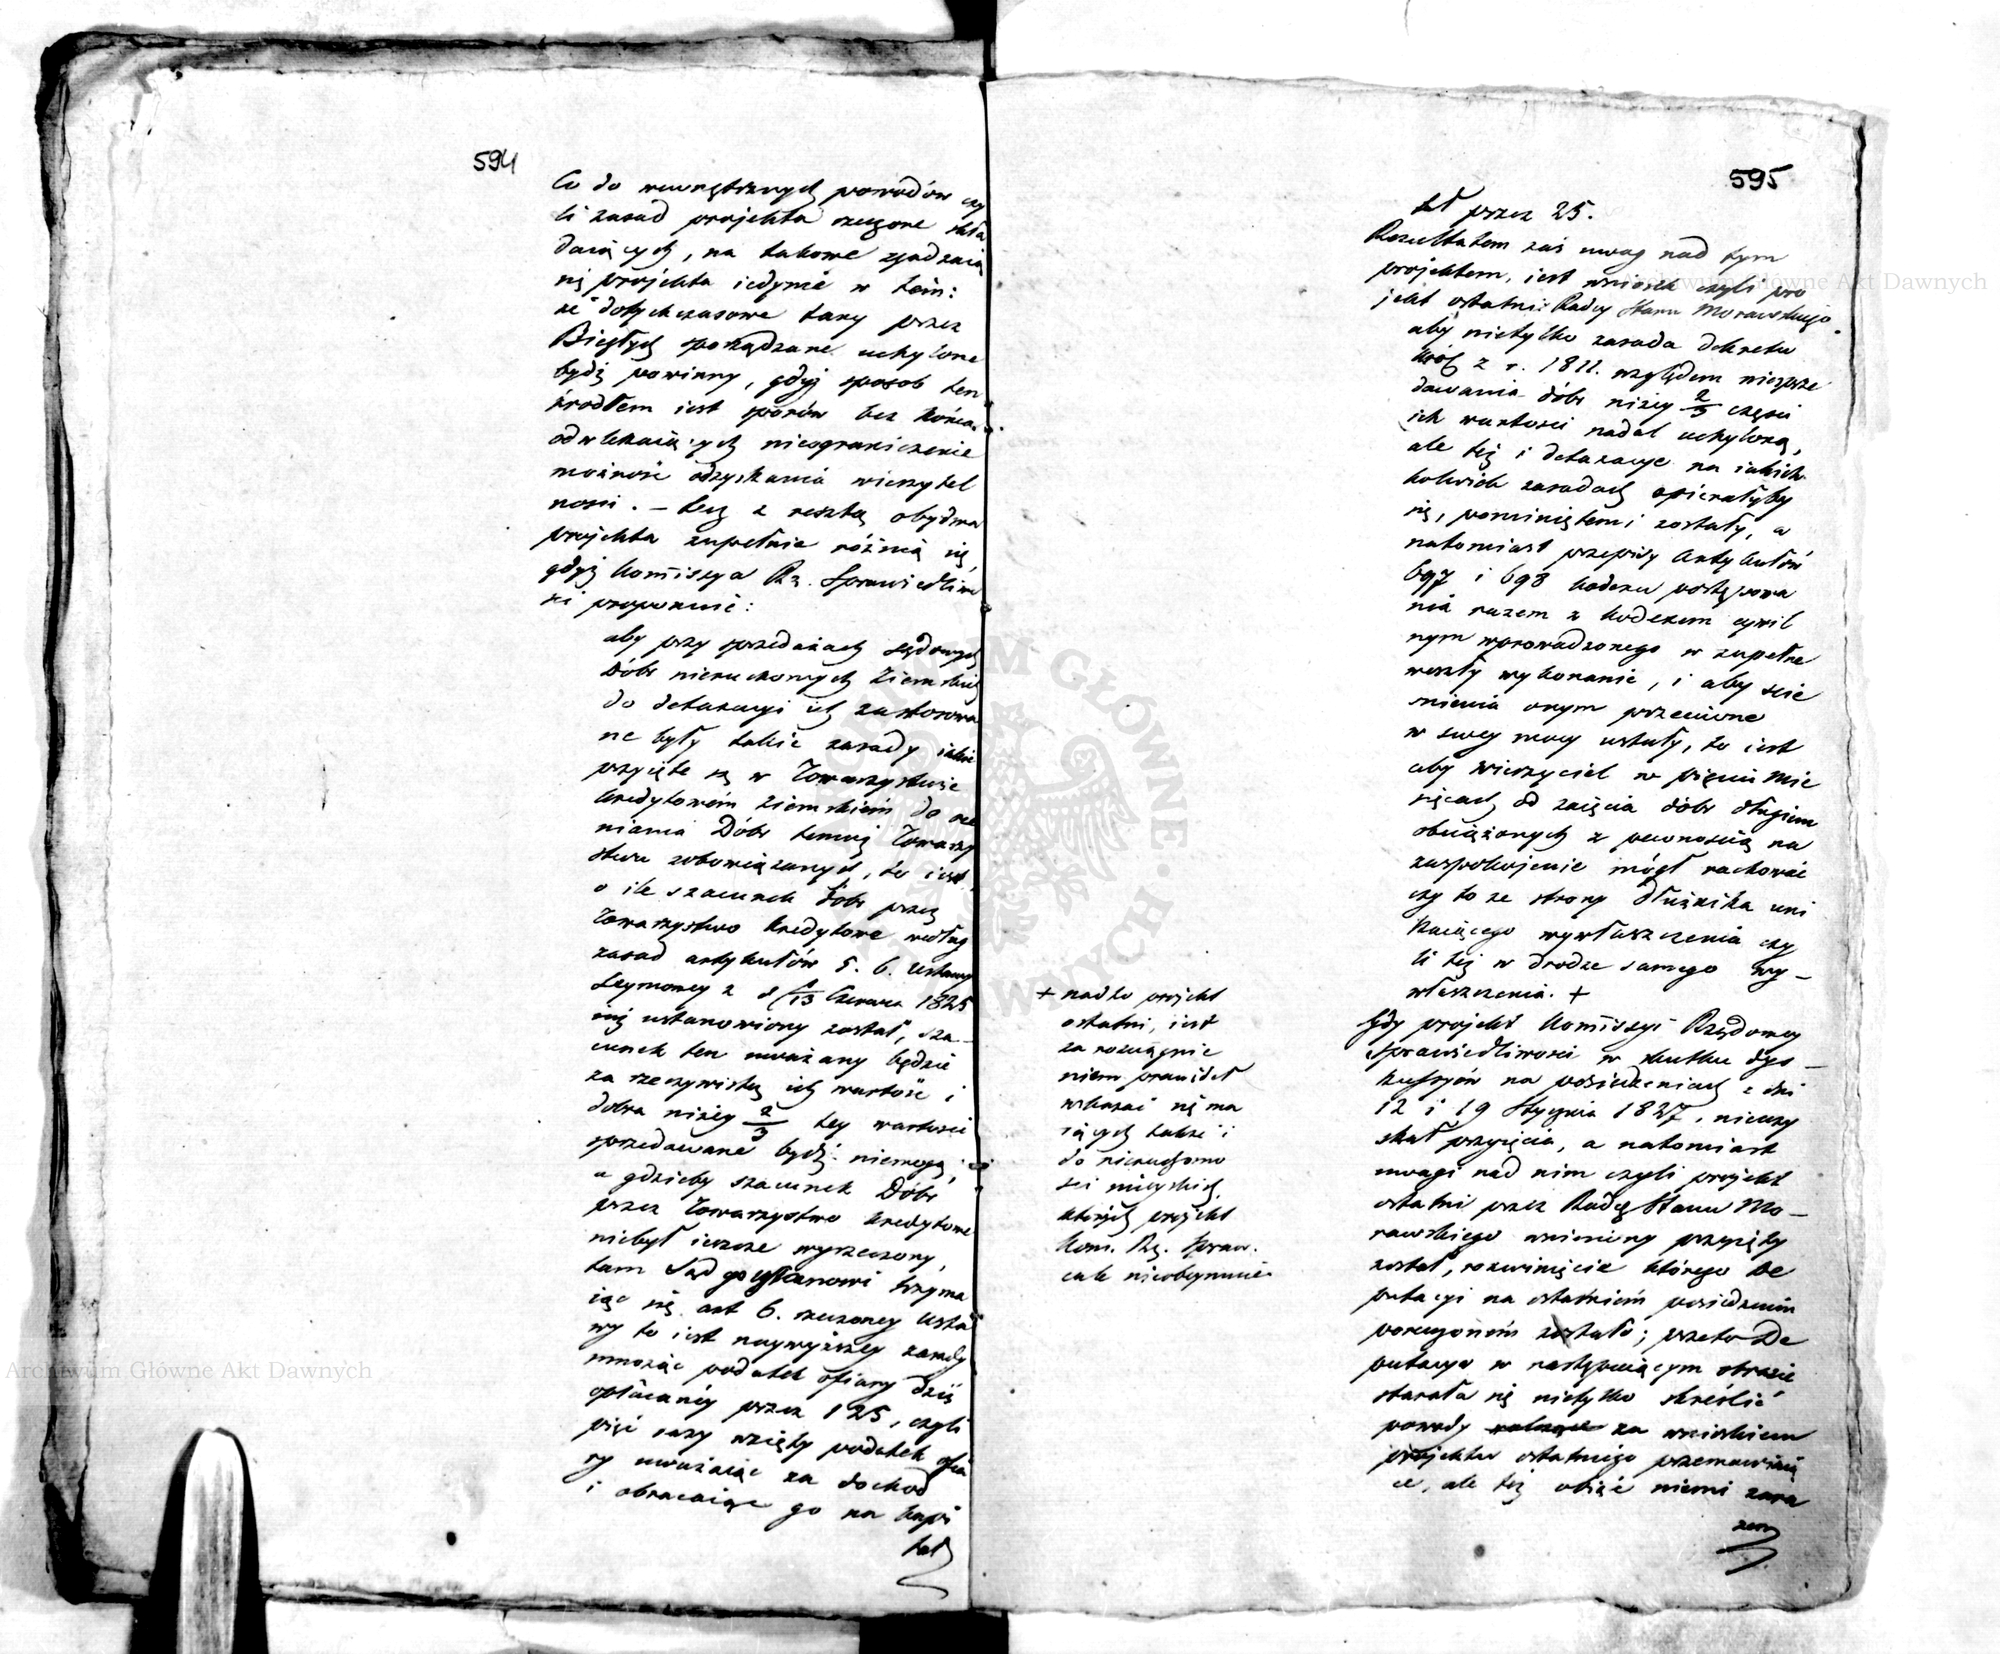 594
Co do wewnętrznych powodów czy
li zasad projekta rzeczone skła
daiących, na takowe zgadzaią
się projekta iedynie w tém:
że dotychczasowe taxy przez
Biegłych sporządzane uchylone
bydź powinny, gdyż sposob ten
źrodłem iest sporów bez końca
odwlekaiących nieograniczenie
możność odzyskania wierzytel
ności. – lecz z resztą obydwa
projekta zupełnie różnią się,
gdyż Kommissya Rz. Sprawiedliwo
ści proponuie:
aby przy sprzedażach sądowych
Dóbr nieruchomych Ziemskich
do detaxacyi ich zastosowa
ne były takie zasady iakie
przyięte są w Towarzystwie
kredytowém ziemskiém do oce
niania Dóbr temuż Towarzy
stwu zobowiązanych, to iest,
o ile szacunek dóbr przez
Towarzystwo kredytowe według
zasad artykułów 5. 6. Ustawy
Seymowey z d 1/13 Czerwca 1825
iuż ustanowiony został, sza–
cunek ten uważany będzie
za rzeczywistą ich wartość i
dobra niżey 2/3 tey wartości
sprzedawane bydź niemogą;
a gdzieby szacunek Dóbr
przez Towarzystwo kredytowe
niebył ieszcze wyrzeczony,
tam Sąd go ustanowi trzyma
iąc się art 6. rzeczoney Usta
wy to iest naywyższey zasady
mnożąc podatek ofiary dziś
opłacaney przez 125, czyli
pięć razy wzięty podatek ofia
ry uważaiąc za dochod
i obracaiąc go na kapi
tał
595
tał przez 25.
Rezultatem zaś uwag nad tym
projektem, iest wniosek czyli pro
jekt ostatni Radcy Stanu Morawskiego
aby nietylko zasada dekretu
Król z r. 1811. względem nieprze
dawania dóbr niżey 2/3 części
ich wartości nadal uchyloną,
ale też i detaxacye na iakich
kolwiek zasadach opierałyby
się, pominiętemi zostały, a
natomiast przepisy Artykułów
697 i 698 kodexu postępowa
nia razem z kodexem cywil
nym wprowadzonego w zupełne
weszły wykonanie, i aby ście
śnienia onym przeciwne
w swey mocy ustały, to iest
aby wierzyciel w pięciu mie
siącach od zaięcia dóbr długiem
obciążonych z pewnością na
zaspokojenie mógł rachować
czy to ze strony dłużnika uni
kaiącego wywłaszczenia czy
li też w drodze samego wy–
właszczenia. +
Gdy projekt Kommissyi Rządowey
Sprawiedliwości w skutku dys–
kussyów na posiedzeniach z dni
12 i 19 Stycznia 1827, nieuzy
skał przyięcia, a natomiast
uwagi nad nim czyli projekt
ostatni przez Radcę Stanu Mo–
rawskiego wniesiony przyięty
został, rozwinięcie którego De
putacyi na ostatniém posiedzeniu
poruczoném zostało; przeto De
putacya w następuiącym obrazie
starała się nietylko skréślić
powody za wnioskiem
projektu ostatniego przemawiaią
ce, ale też obiąć niemi zara
zem
+ nadto projekt
ostatni, iest
za rozciągnie
niem prawideł
wskazać się ma
iących także i
do nieruchomo
ści mieyskich,
których projekt
Kom. Rz. Spraw.
cale nieobeymuie